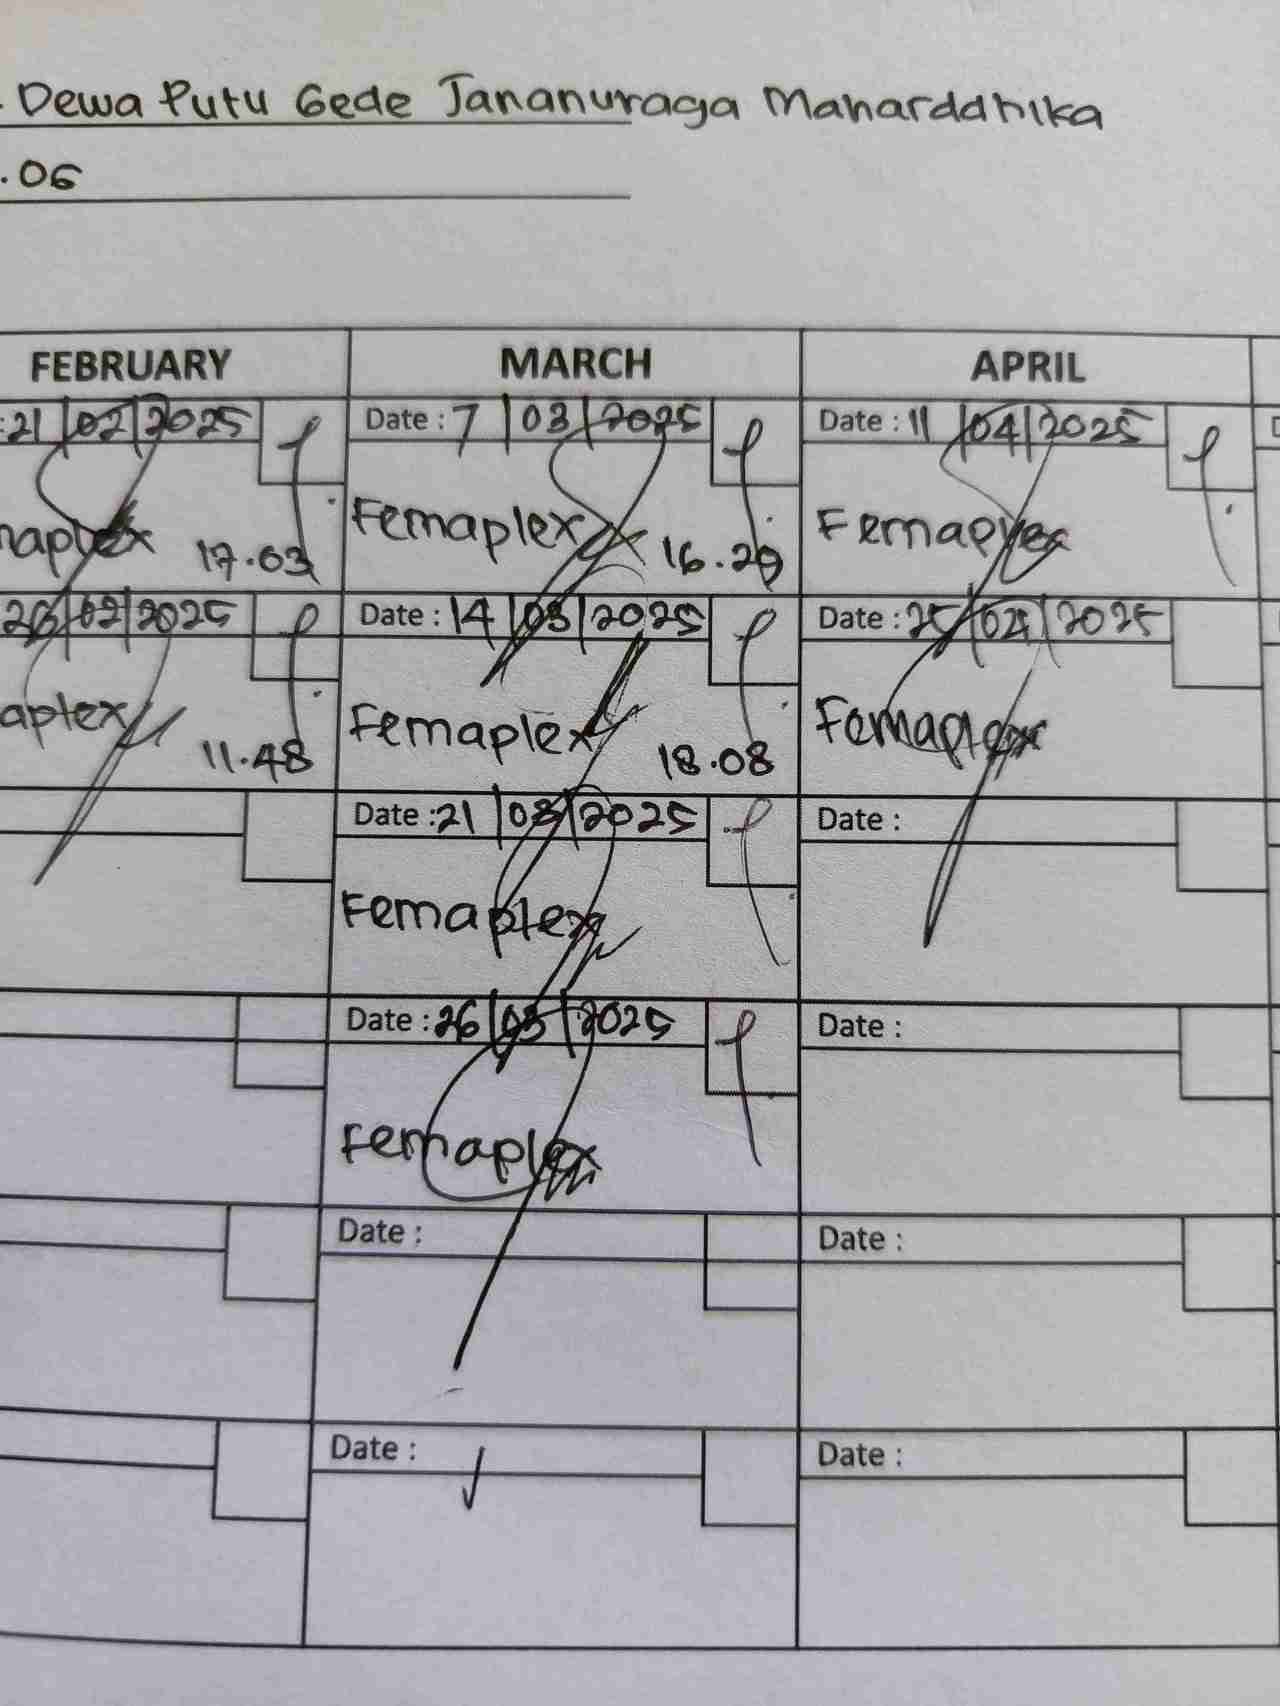 Dewa Putu Gede Jananuraga Mahardhika
.06
FEBRUARY MARCH APRIL
:21/02/2025 Date : 7/03/2025 Date : 11/04/2025
maplex 17.03 Femaplex 16.29 Femaplex
26/02/2025 Date : 14/03/2025 Date : 25/04/2025
aplex 11.48 Femaplex 18.08 Femaplex
Date :21/03/2025 Date :
Femaplex
Date : 26/03/2025 Date :
Femaplex
Date : Date :
Date : Date :